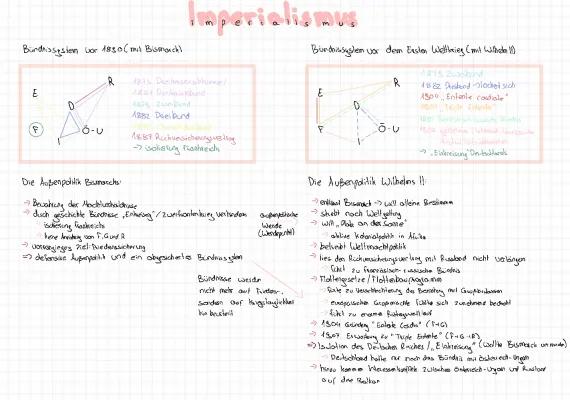 Imperialismus
imperialismus
Bündnissystem vor 1890 (mit Bismarck)
Bündnissystem vor dem Ersten Weltkrieg (mit Wilhelm II)
E
R
D
F
Ö-U
I
1873 Dreikaiserabkommen
1881 Dreikaiserbund
1879 Zweibund
1882 Dreibund
1887 Rückversicherungsvertrag
→ Isolierung Frankreich
E
R
D
F
Ö-U
I
1879 Zweibund
1882 Dreibund → lockert sich
1904 "Entente cordiale"
"Triple Entente"
→ "Einkreisung" Deutschlands
Die Außenpolitik Bismarcks:
→ Bewahrung der
→ durch geschickte Bündnisse "Einkreisung" / Zweifrontenkrieg verhindern
Isolierung Frankreich
keine Annäherung von F, G und R
→ vorrangiges Ziel: Friedenssicherung
→ defensive Außenpolitik und ein abgesichertes Bündnissystem
außenpolitische
Wende
(Wendepunkt)
Bündnisse werden
nicht mehr auf Friedens-,
sondern auf Kriegstauglichkeit
hin beurteilt
Die Außenpolitik Wilhelms II:
→ entlässt Bismarck → will alleine bestimmen
→ strebt nach Weltgeltung
→ will "Platz an der Sonne"
aktive Kolonialpolitik in Afrika
→ betreibt Weltmachtpolitik
→ lies den Rückversicherungsvertrag mit Russland nicht verlängern
führt zu französisch-russische Bündnis
→ Flottengesetze / Flottenbauprogramm
führte zu Verschlechterung der Beziehung mit Großbritannien
europäische Großmächte fühlte sich zunehmend bedroht
führt zu enormen Rüstungswettlauf
→ 1904 Gründung "Entente Cordiale" (F+G)
→ 1907 Erweiterung zur "Triple Entente" (F+G+R)
⇒ Isolation des Deutschen Reiches / "Einkreisung" (wollte Bismarck vermeiden)
Deutschland hatte nur noch das Bündnis mit Österreich-Ungarn
→ hinzu kommen Interessenkonflikte zwischen Österreich-Ungarn und Russland
auf dem Balkan